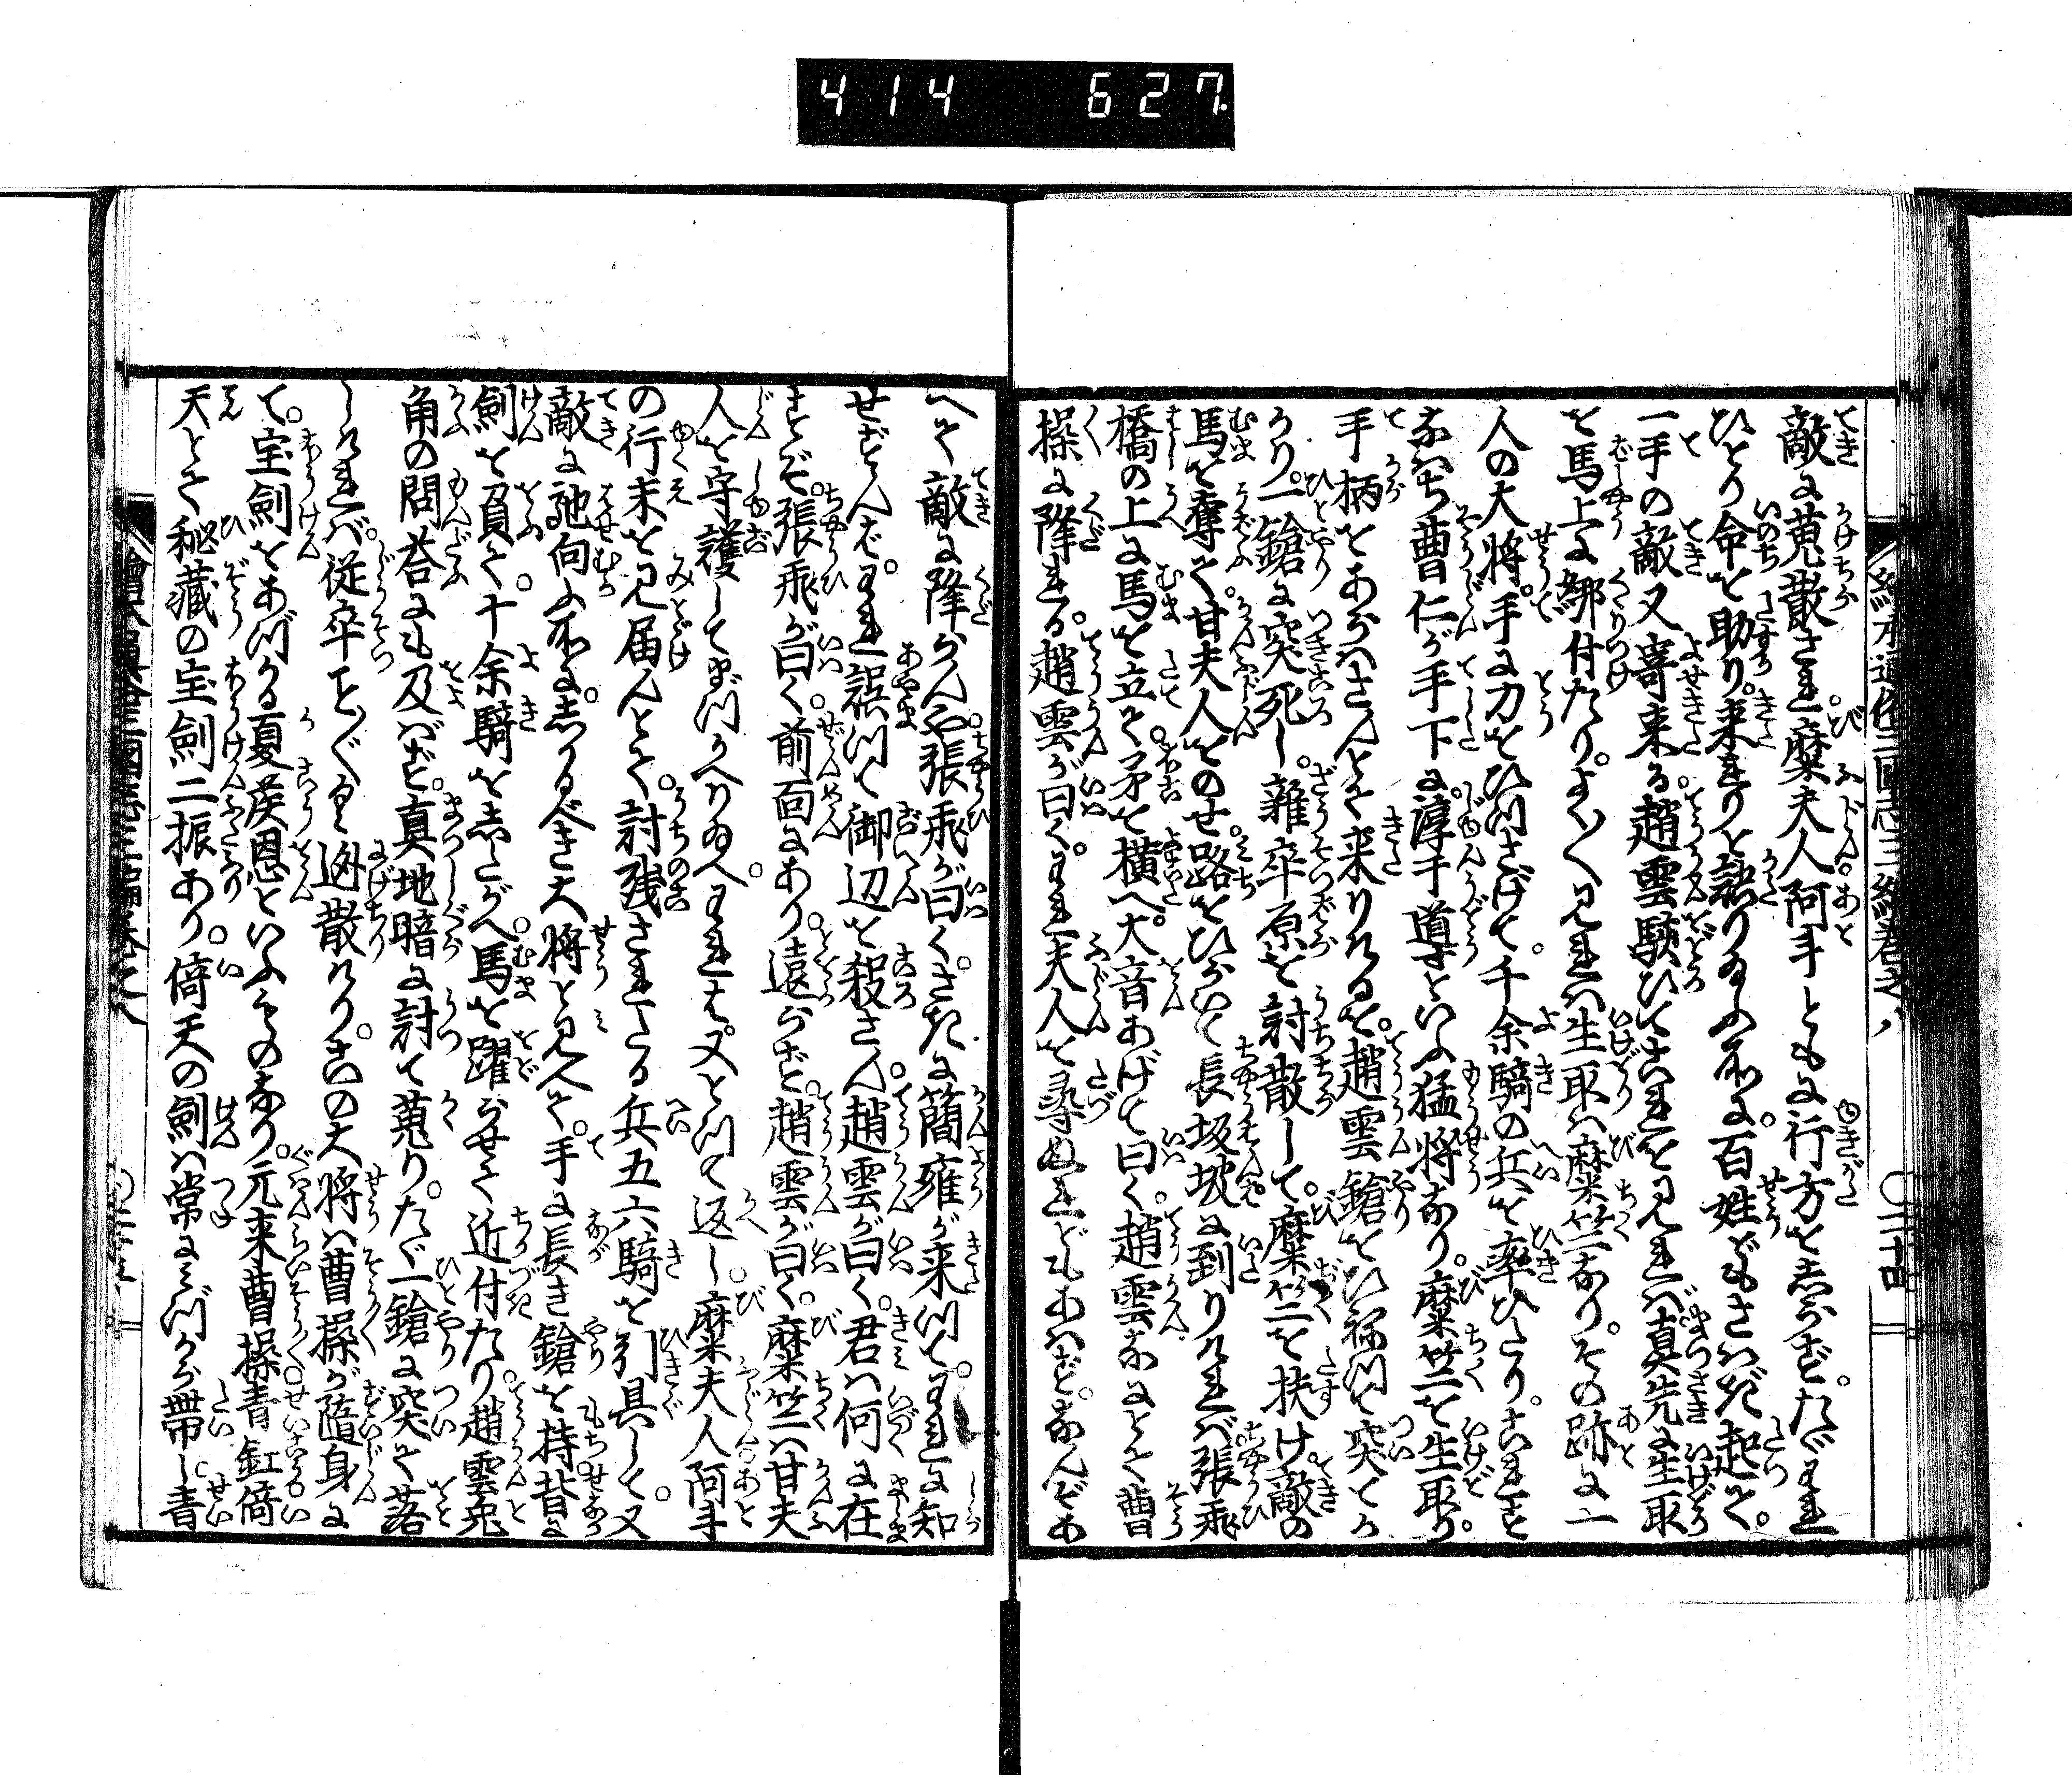 414 627
繪本通俗三國志三編巻之八
○二十四
敵に蒐散され。糜夫人阿斗ともに行方をしらず。たゞわれ
ひとり命を助り。来れりと語りゐふ所に。百姓どもさはだ起て。
一手の敵又寄来る。趙雲駭ひてこれを見れば真先に生取
を馬上に綁付たり。よく〳〵見れば生取は糜竺なり。その跡に一
人の大将。手に刀をひつさげて。千余騎の兵を率ひたり。これす
なはち曹仁が手下に。淳于導といふ猛将なり。糜竺を生取り。
手柄をあらはさんとて来りけるを。趙雲鎗をひねつて突てか
かり。一鎗に突死し。雑卒原を討散して。糜竺を扶け。敵の
馬を奪て。甘夫人をのせ。路をひらいて長坂坡に到りければ張飛
橋の上に馬を立て。矛を横へ。大音あげて曰く。趙雲なにとて曹
操に降れる。趙雲が曰く。われ夫人を尋ぬれどもあはず。なんぞあ
へて敵に降らんや。張飛が曰く。さきに簡雍が来つて。われに知
せずんば。われ誤つて御辺を殺さん。趙雲が曰く。君は何に在
ますぞ。張飛が曰く。前面にあり。遠からず。趙雲が曰く。糜竺は甘夫
人を守護してまづかへりゐへ。われは又とつて返し。糜夫人阿斗
の行末を見届んとて。討残されたる兵五六騎を引具して。又
敵に馳向ふ所に。しかるべき大将と見へて。手に長き鎗を持。背に
劍を負て。十余騎をしたがへ。馬を躍らせて近付たり。趙雲兎
角の問答にも及ばず。真地暗に討て蒐り。たゞ一鎗に突て落
しければ。従卒こと〴〵く迯散けり。この大将は曹操が随身に
て。宝劍をあづかる夏侯恩といふものなり。元来曹操青釭倚
天とて秘蔵の宝劍二振あり。倚天の劍は常にみづから帯し。青